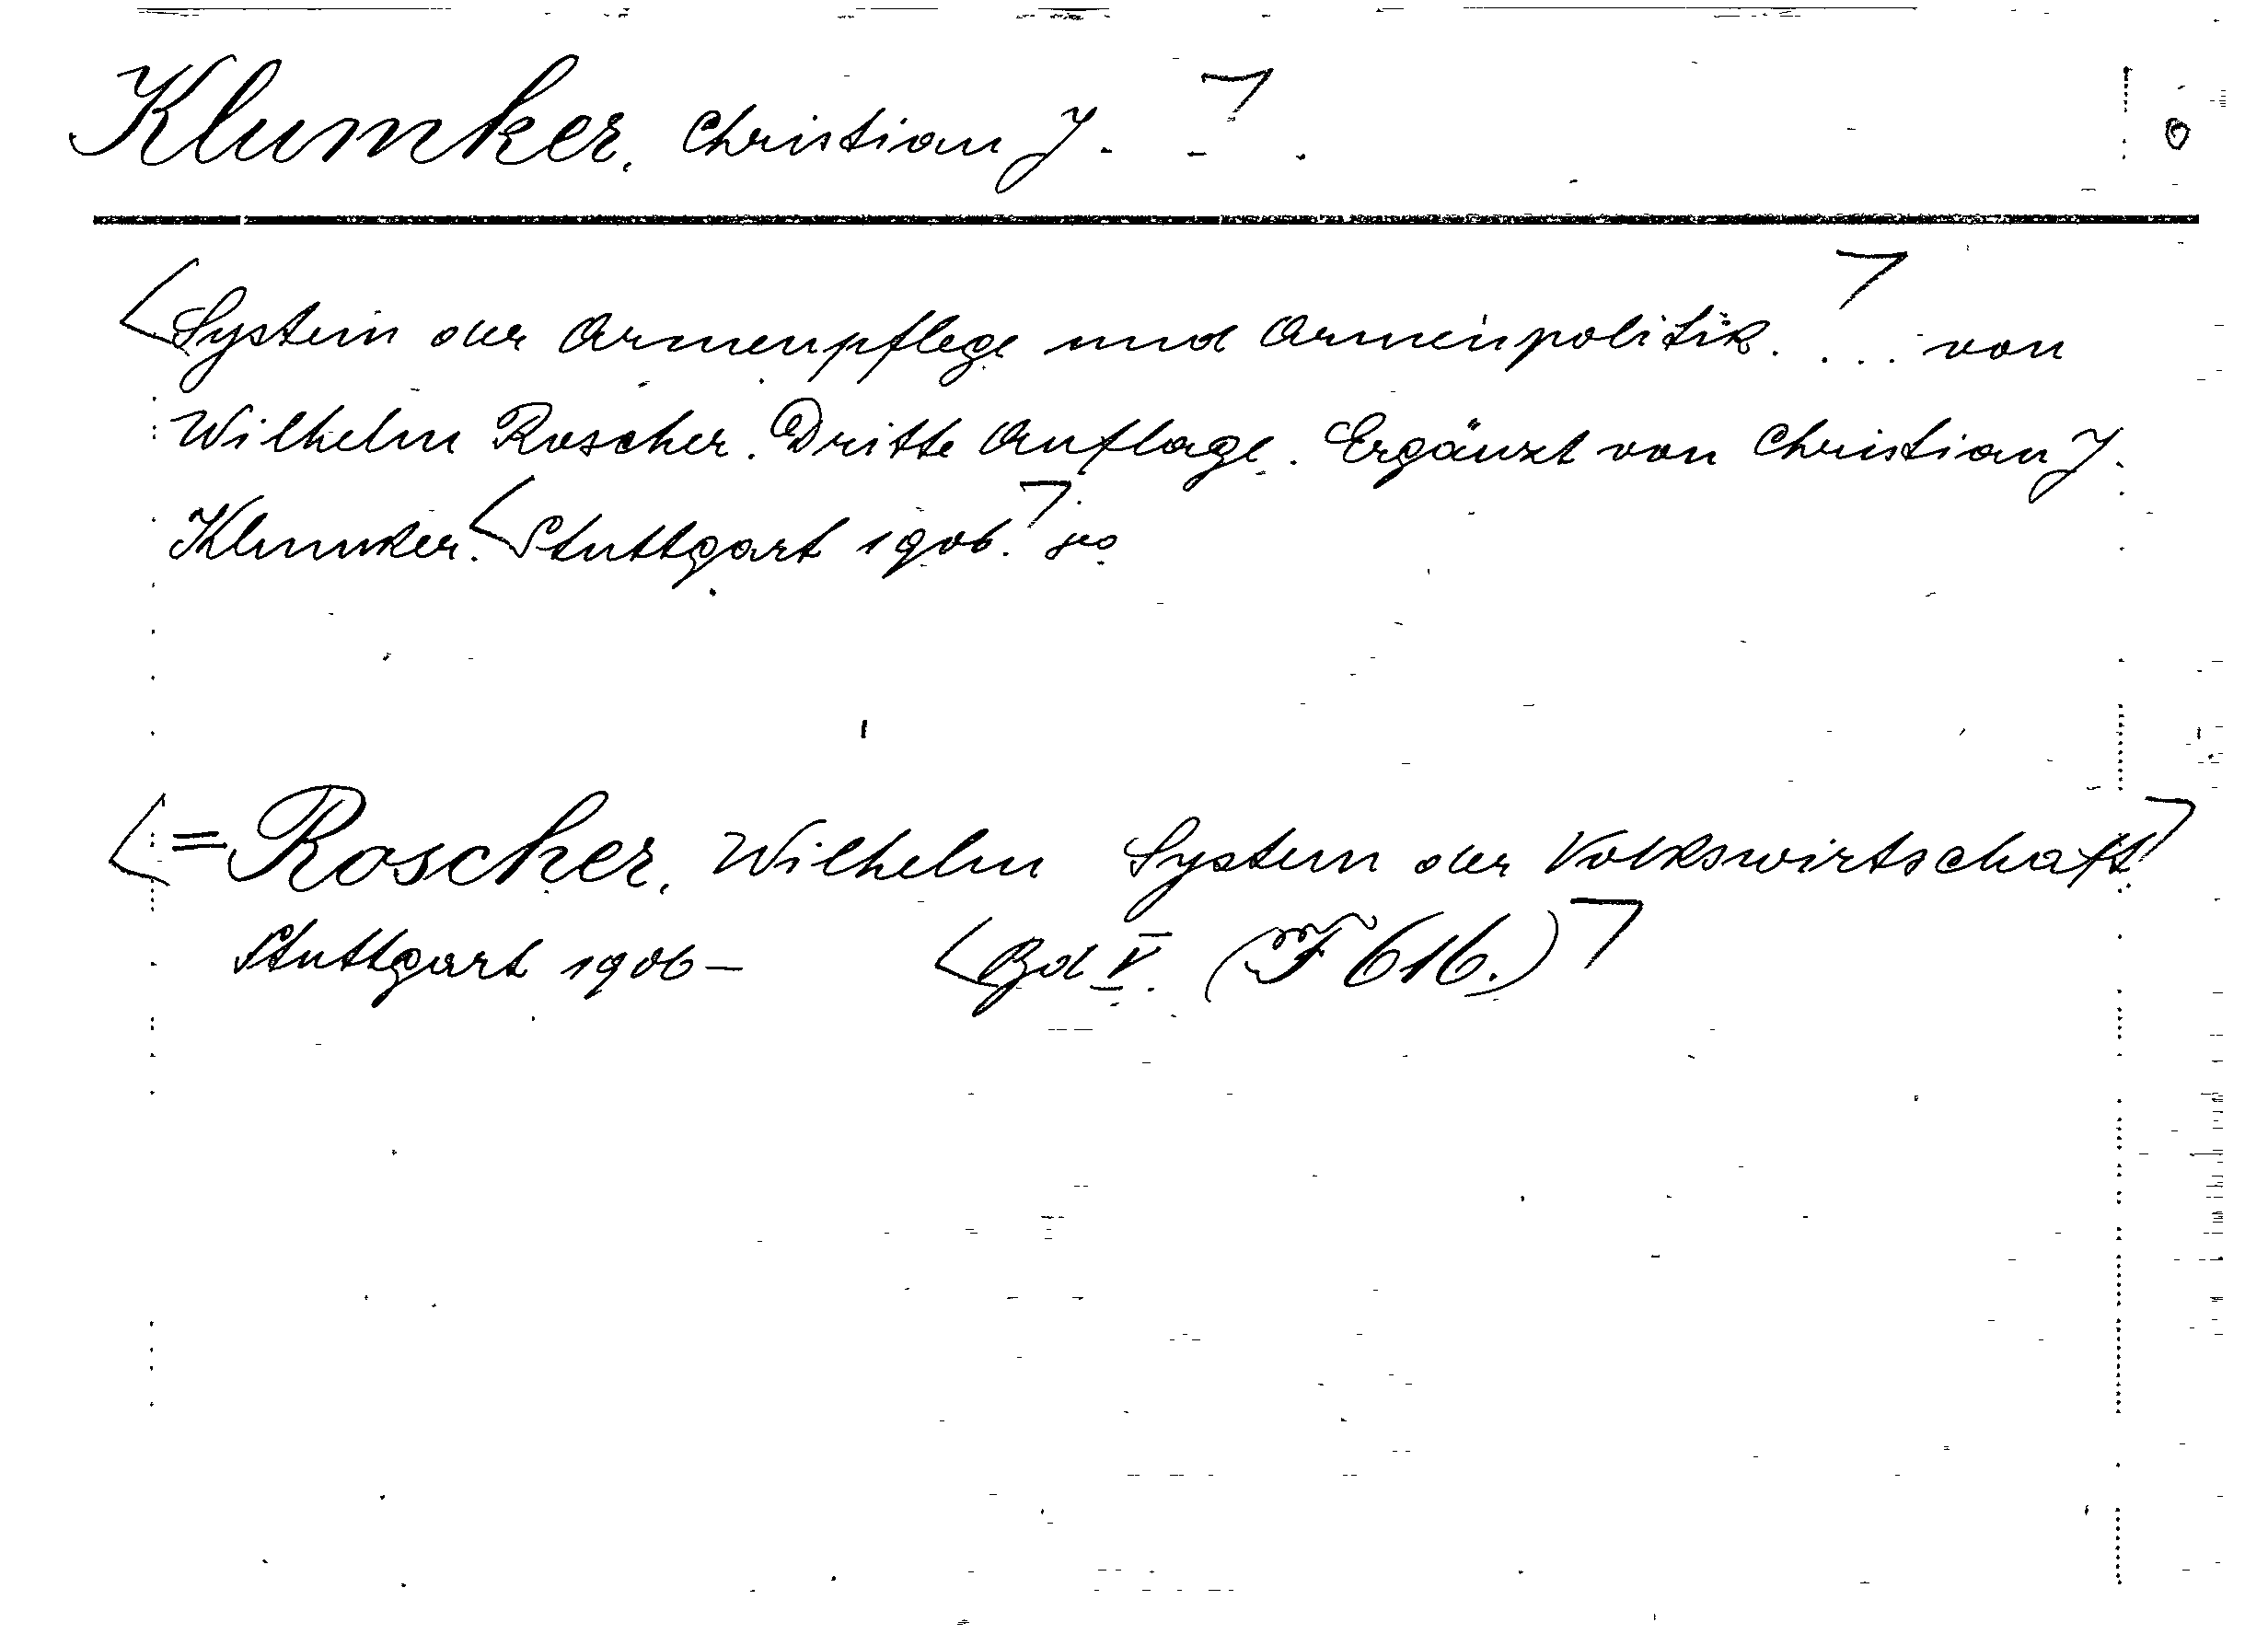 Klumker, Christian J.
System der Armenpflege und Armenpolitik. ... von
Wilhelm Roscher. Dritte Auflage. Ergänzt von Christian J.
Klumker. Stuttgart 1906. 8°
= Roscher, Wilhelm System der Volkswirtschaft
Stuttgart 1906 – Bd V. (F 616.)